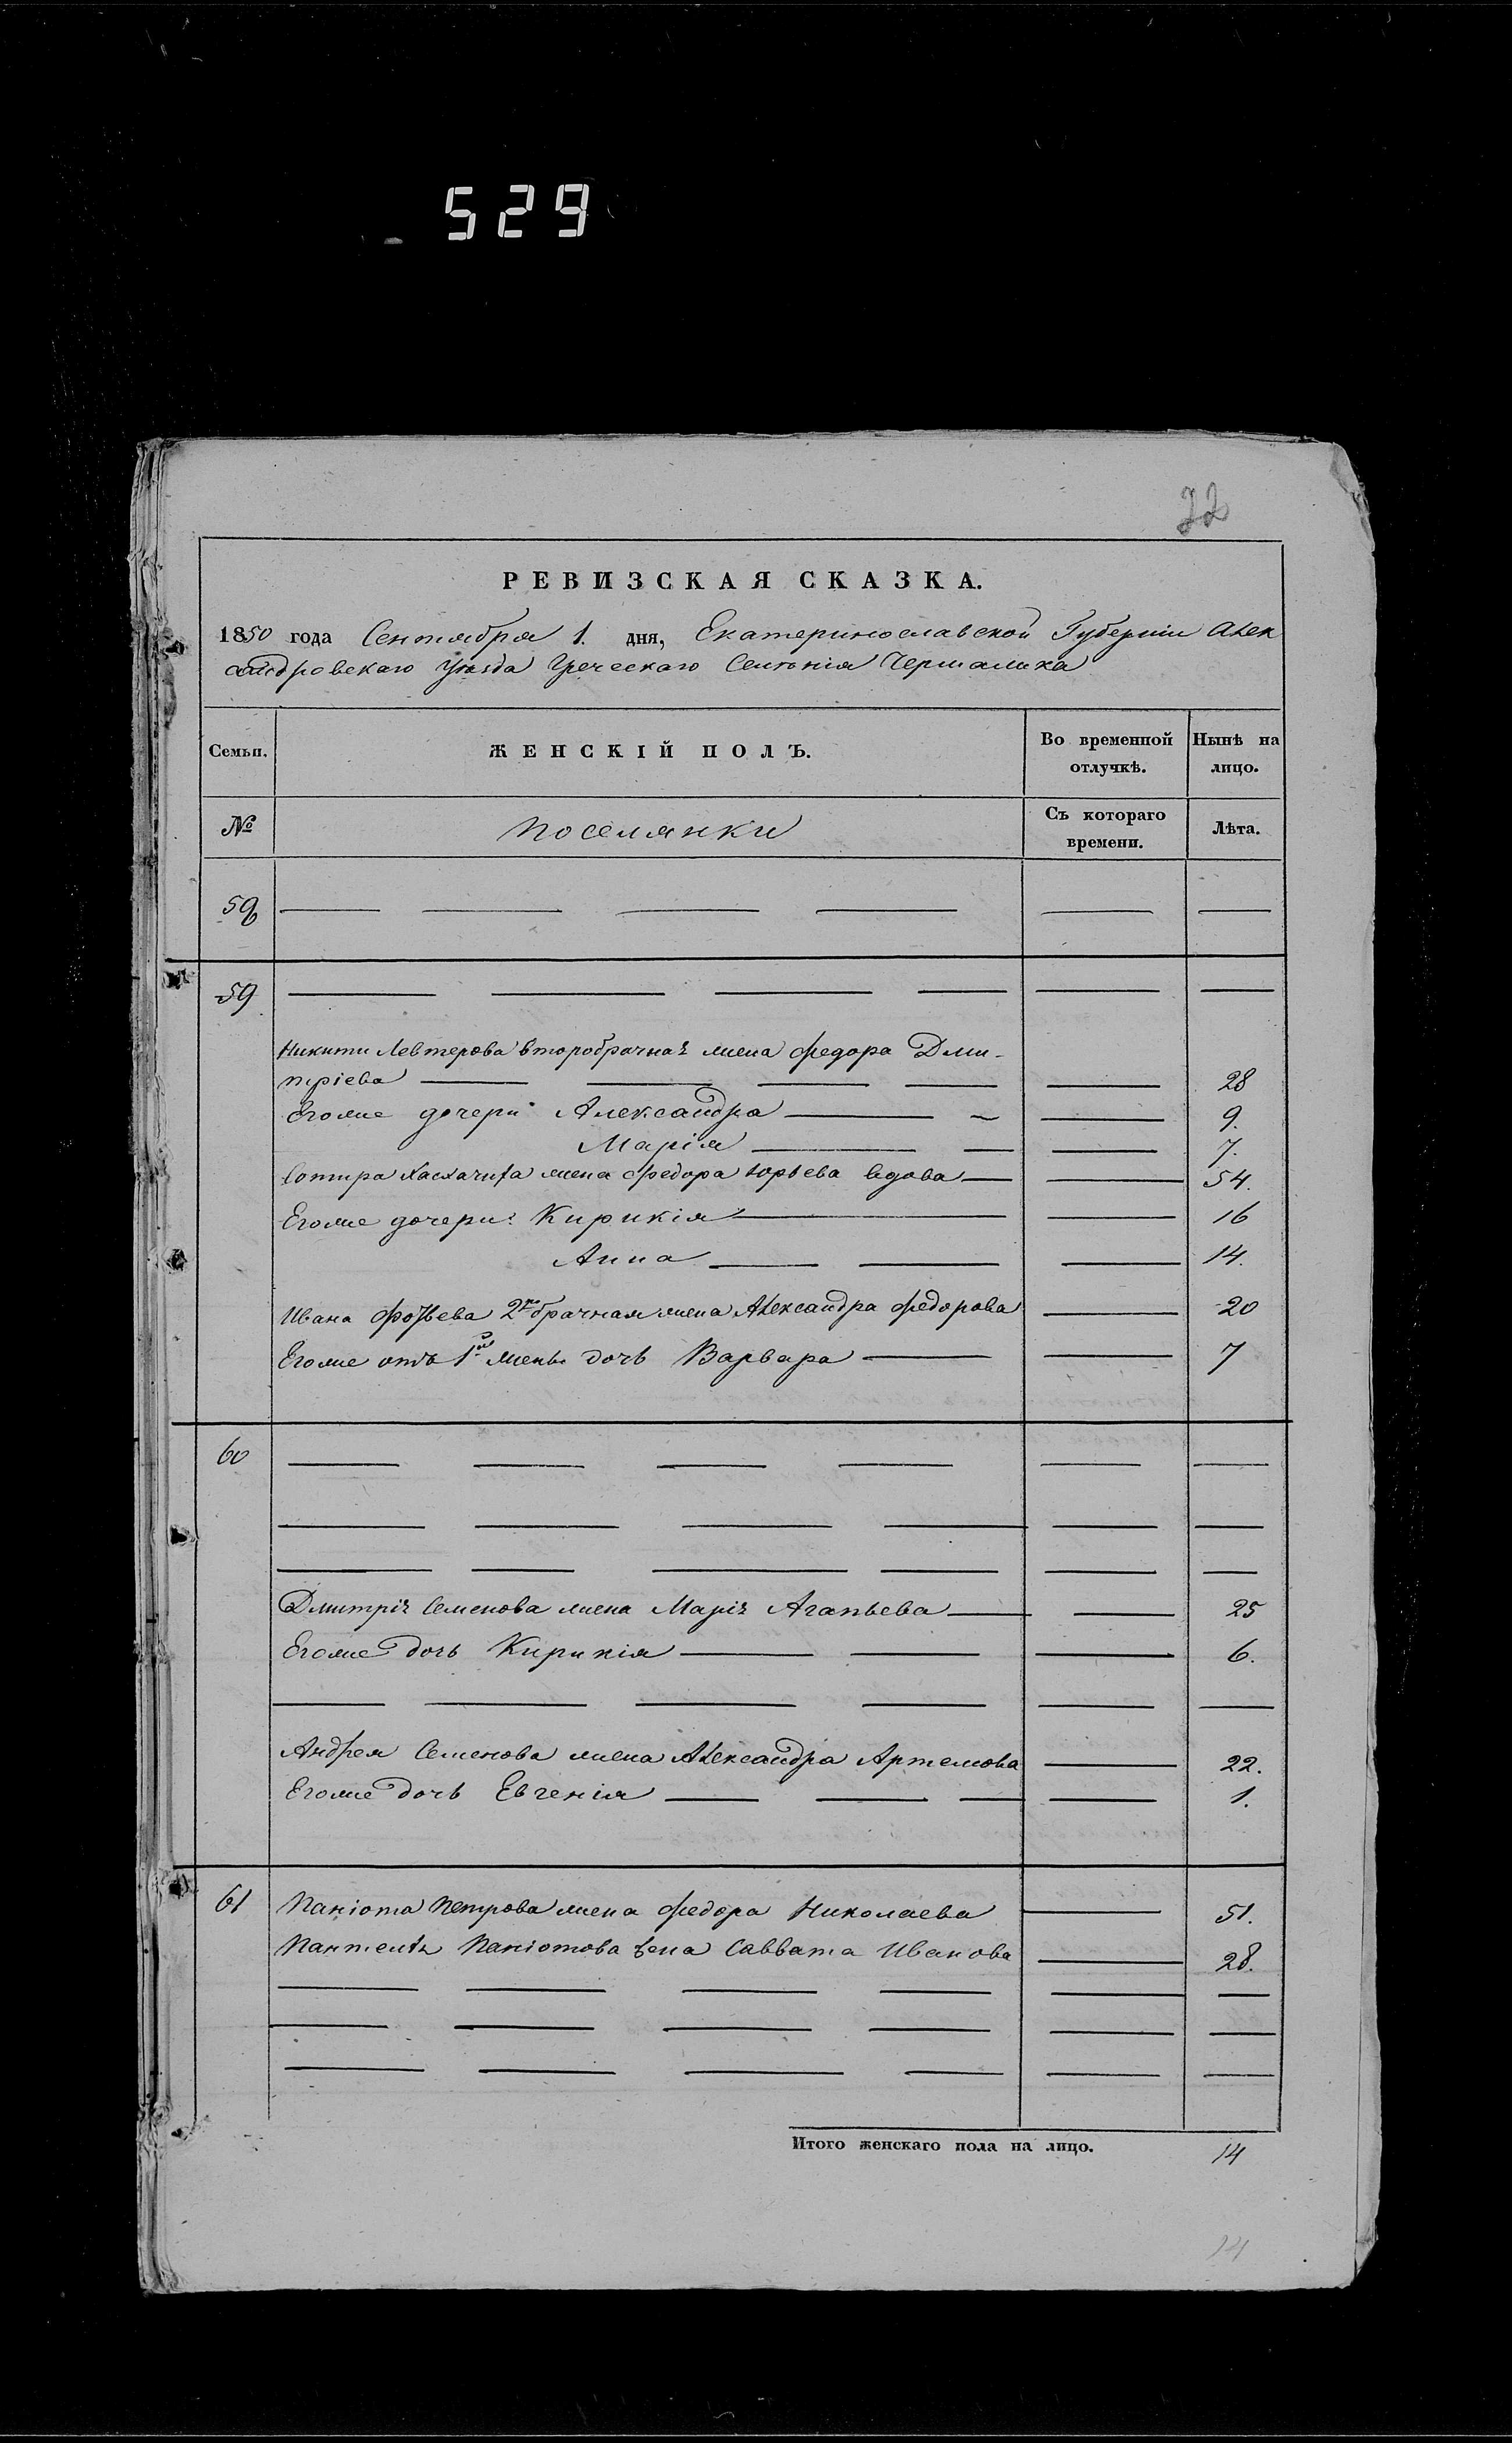 529
72
РЕВИЗСКАЯ СКАЗКА.
1850 года Сентября 1. дня, Екатеринославской Губерніи Алек
сандровскаго уѣзда Греческаго Селѣнія Чермалика
Семьи. ЖЕНСКІЙ ПОЛЪ. Во временной отлучкѣ. Нынѣ на лицо.
№ Поселянки Съ котораго времени. Лѣта.
58
59
Никити Левтерова второбрачная жена Федора Дми-
тріева 28
Егоже дочери Александра 9.
Марія 7.
Сотира жена Федора Юрьева вдова 54.
Егоже дочери: Кирикія 16
Анна 14.
Ивана Фотьева 2ᵒбрачная жена Александра Федорова 20
Егоже отъ 1ᵒⁱ жены дочь Варвара 7
60
Дмитрія Семенова жена Марія Агапьева 25
Егоже дочь Кирикія 6.
Андрея Семенова жена Александра Артемова 22.
Егоже дочь Евгенія 1.
61 Паніота Петрова жена Федора Николаева 51.
Пантелѣя Паніотова жена Саввата Иванова 28.
Итого женскаго пола на лицо. 14
14